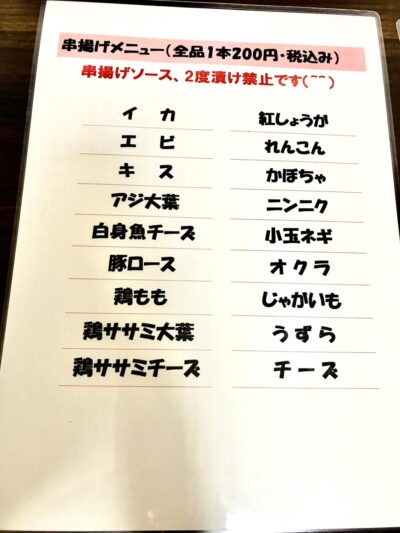 串揚げメニュー(全品1本200円・税込み)
串揚げソース、2度漬け禁止です(^^)
イ カ
エ ビ
キ ス
アジ大葉
白身魚チーズ
豚ロース
鶏もも
鶏ササミ大葉
鶏ササミチーズ
紅しょうが
れんこん
かぼちゃ
ニンニク
小玉ネギ
オクラ
じゃがいも
うずら
チーズ